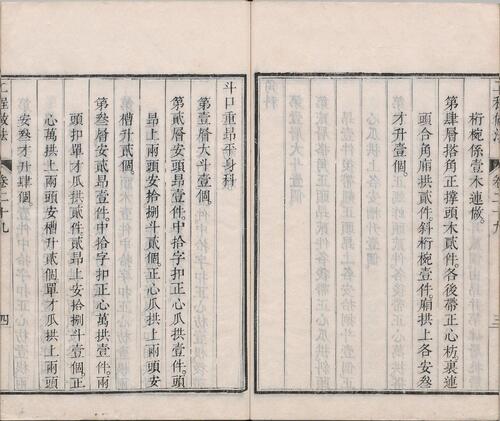 桁椀係壹木連做。
第肆層搭角正撑頭木貳件。各後帶正心枋。裏連
頭合角廂拱貳件。斜桁椀壹件。廂拱上各安叁
才升壹個。
三
斗口重昂平身科
第壹層大斗壹個。
第貳層安頭昂壹件。中拾字扣正心瓜拱壹件。頭
昂上兩頭安拾捌斗貳個。正心瓜拱上兩頭安
槽升貳個。
第叁層安貳昂壹件。中拾字扣正心萬拱壹件。兩
頭扣單才瓜拱貳件。貳昂上安拾捌斗壹個。正
心萬拱上兩頭安槽升貳個。單才瓜拱上兩頭
安叁才升肆個。
工程做法
卷二十九
四